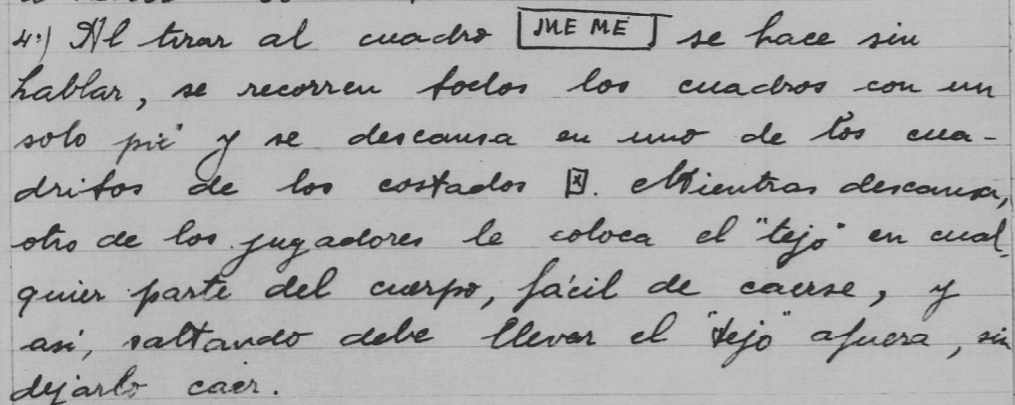 4:) Al tirar al cuadro ME ME se hace sin
hablar, se recorren todos los cuadros con un
solo pié y se descansa en uno de los cua-
dritos de los costados X. Mientras descansa,
otro de los jugadores le coloca el "tejo" en cual
quier parte del cuerpo, fácil de caerse, y
así, saltando debe llevar el "tejo" afuera, sin
dejarlo caer.